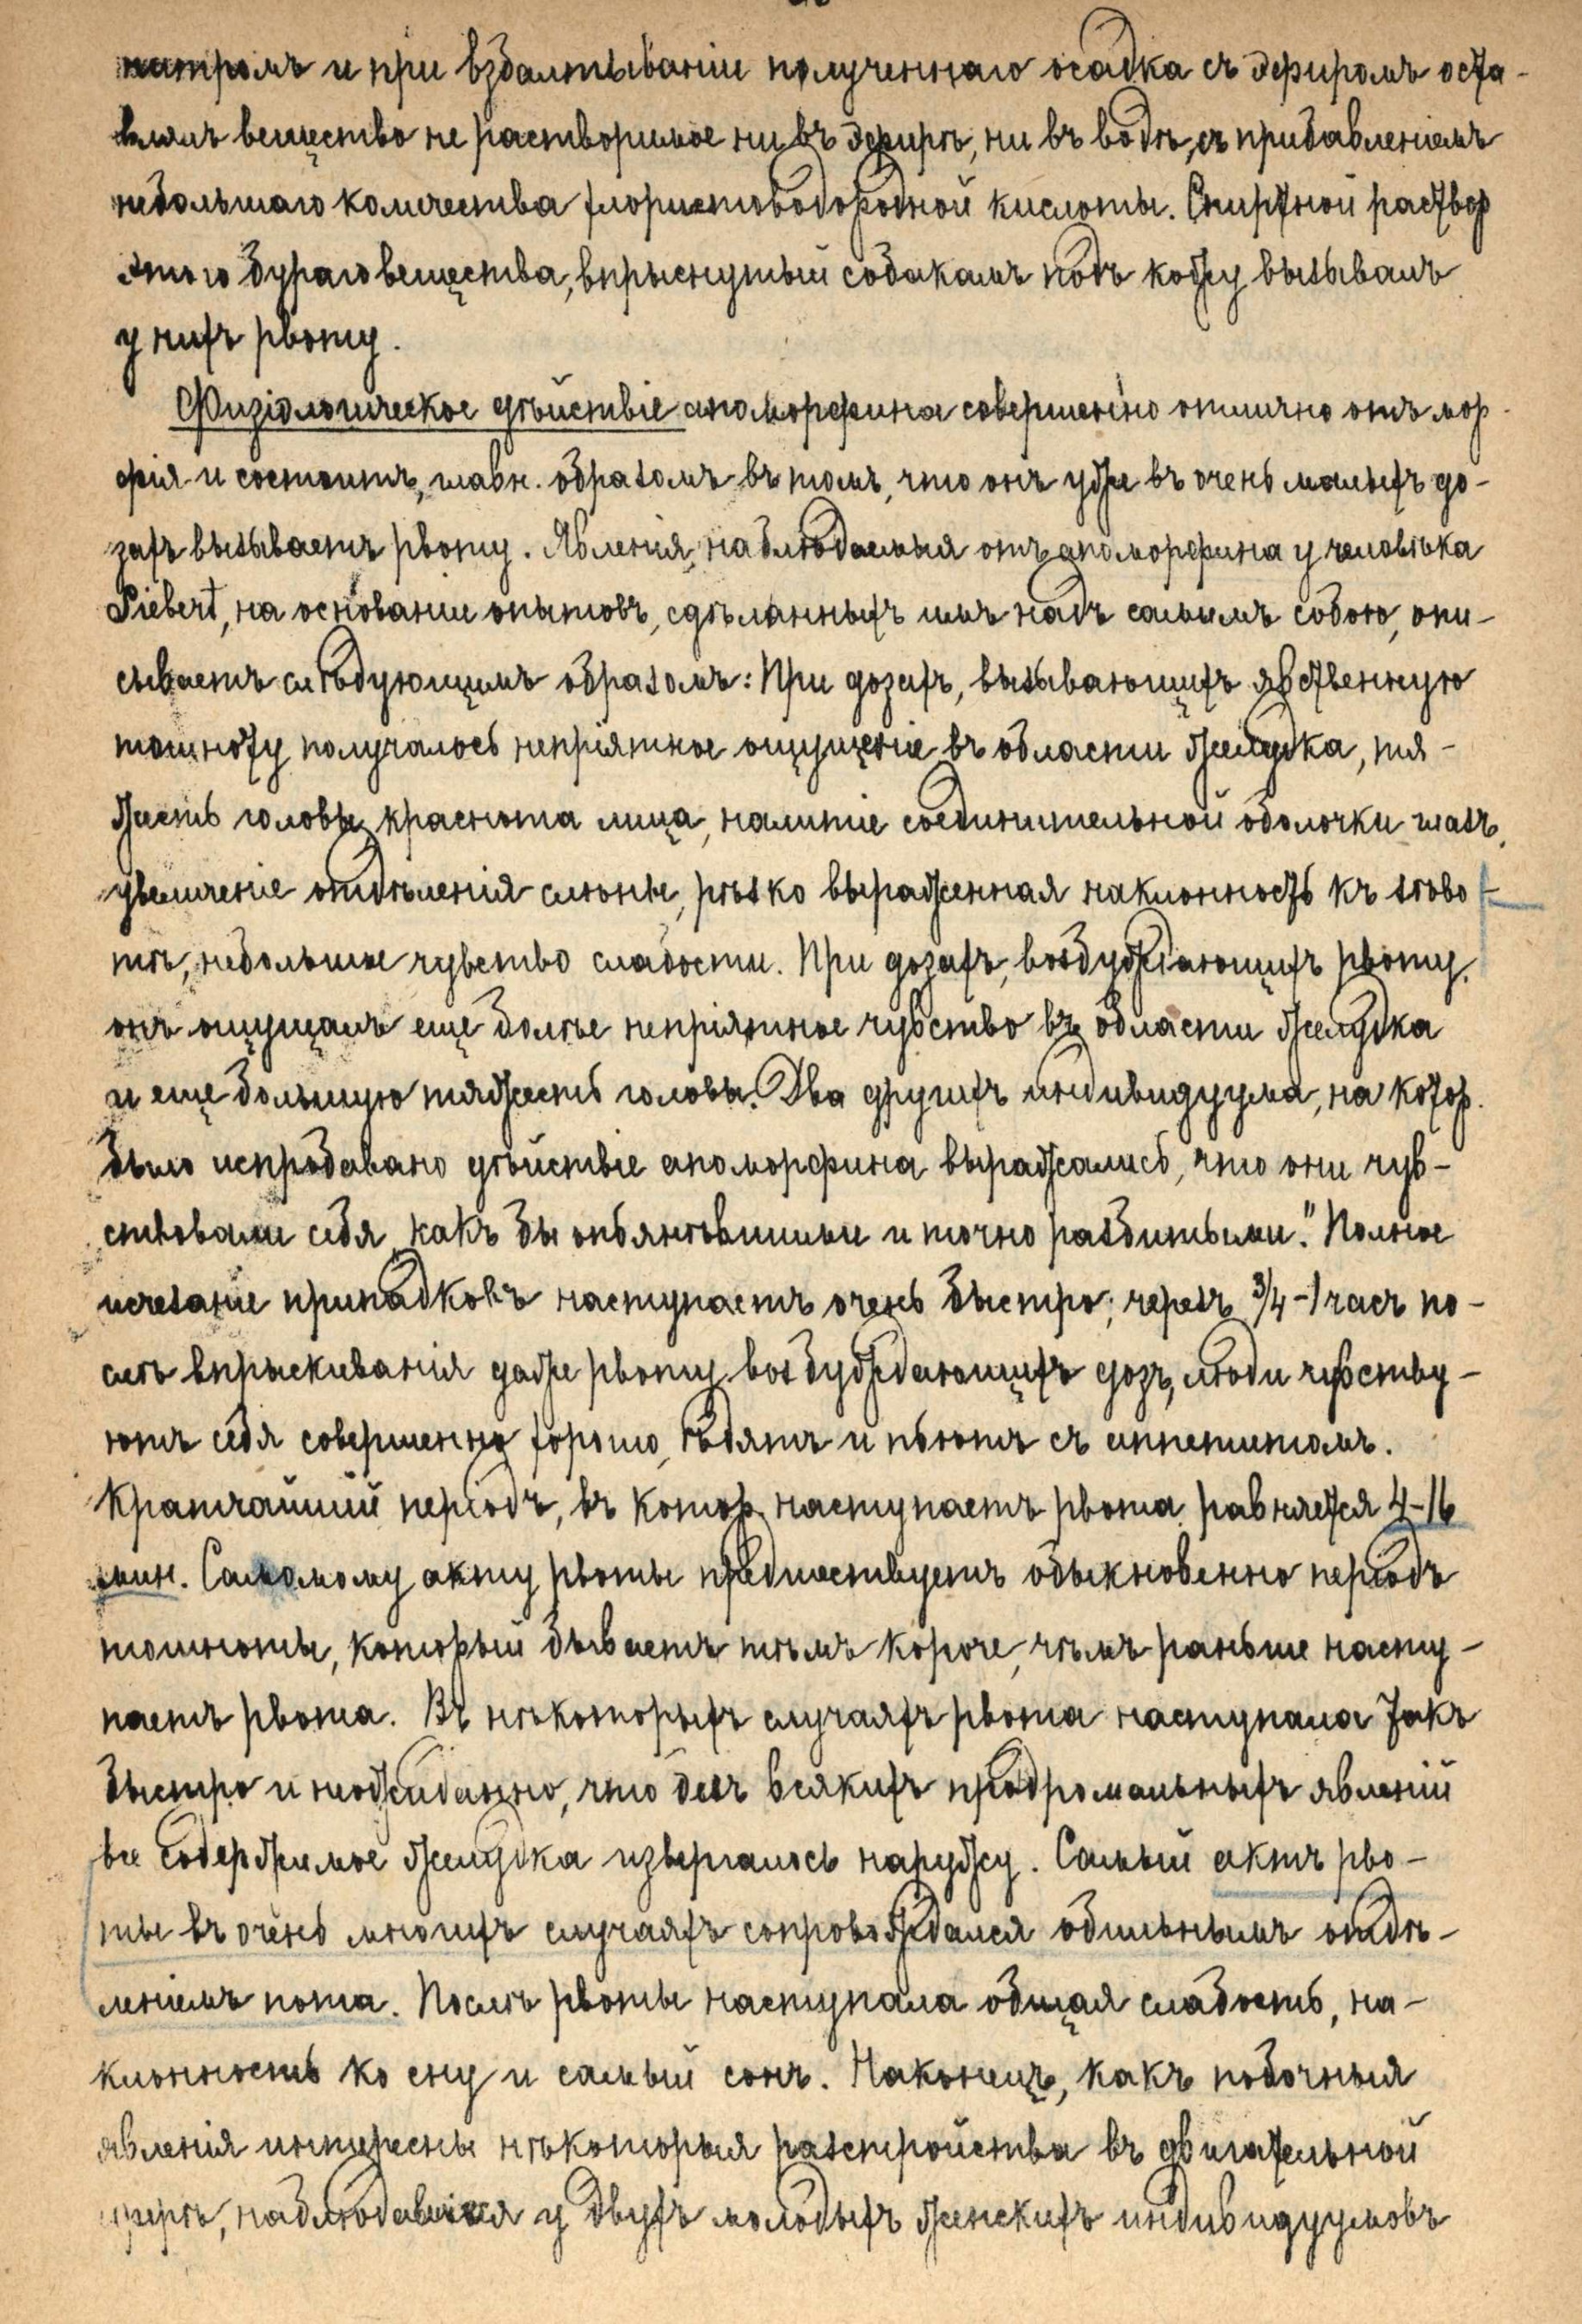 натромъ и при взбалтываніи полученнаго осадка съ эфиромъ оста-
влялъ вещество не растворимое ни въ эфирѣ, ни въ водѣ, съ прибавленіемъ
небольшаго количества хлористоводородной кислоты. Спиртной раствор
этого бураго вещества, впрыснутый собакамъ подъ кожу вызывалъ
у нихъ рвоту.
Физіологическое дѣйствіе апоморфина совершенно отлично отъ мор-
фія и состоитъ, главн. образомъ въ томъ, что онъ уже въ очень малыхъ до-
захъ вызываетъ рвоту. Явленія, наблюдаемыя отъ апоморфина у человѣка
Siebert, на основаніи опытовъ, сдѣланныхъ имъ надъ самымъ собою, опи-
сываетъ слѣдующимъ образомъ: При дозахъ, вызывающихъ явственную
тошноту получалось непріятное ощущеніе въ области желудка, тя-
жесть головы, краснота лица, налитіе соединительной оболочки глазъ,
увеличеніе отдѣленія слюны, рѣзко выраженная наклонность къ зѣво
тѣ, небольшое чувство слабости. При дозахъ, возбуждающихъ рвоту,
онъ ощущалъ еще болѣе непріятное чувство въ области желудка
и еще большую тяжесть головы. Два другихъ индивидуума, на котор.
было испробовано дѣйствіе апоморфина выражались, что они чув-
ствовали себя „какъ бы опьянѣвшими и точно разбитыми." Полное
исчезаніе припадковъ наступаетъ очень быстро; черезъ 3/4-1 часъ по-
слѣ впрыскиванія даже рвоту возбуждающихъ дозъ, люди чувству-
ютъ себя совершенно хорошо, ѣдятъ и пьютъ съ аппетитомъ.
Кратчайшій періодъ, въ котор. наступаетъ рвота, равняется 4-16
мин. Самомому акту рвоты предшествуетъ обыкновенно періодъ
тошноты, который бываетъ тѣмъ короче, чѣмъ раньше насту-
паетъ рвота. Въ нѣкоторыхъ случаяхъ рвота наступала такъ
быстро и неожиданно, что безъ всякихъ продромальныхъ явленій
все содержимое желудка извергалось наружу. Самый актъ рво-
ты въ очень многихъ случаяхъ сопровождался обильнымъ отдѣ-
леніемъ пота. Послѣ рвоты наступала общая слабость, на-
клонность ко сну и самый сонъ. Наконецъ, какъ побочныя
явленія интересны нѣкоторыя разстройства въ двигательной
сферѣ, наблюдавшіяся у двухъ молодыхъ женскихъ индивидуумовъ